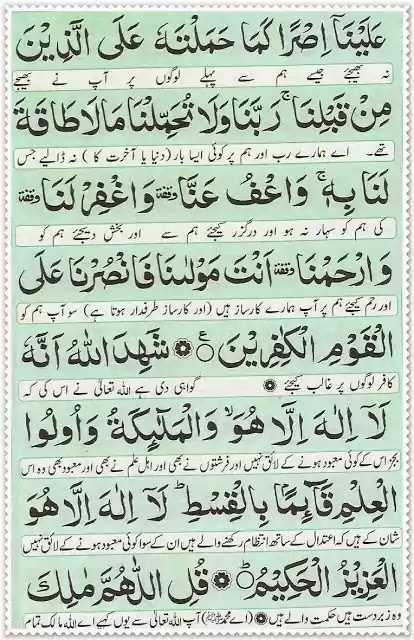 عَلَيْنَآ اِصْرًا كَمَا حَمَلْتَهٗ عَلَى الَّذِيْنَ
نہ بھیجئے جیسے ہم سے پہلے لوگوں پر آپ نے بھیجے
مِنْ قَبْلِنَا ۚ رَبَّنَا وَلَا تُحَمِّلْنَا مَا لَا طَاقَةَ
تھے۔ اے ہمارے رب اور ہم پر کوئی ایسا بار (دنیا یا آخرت کا) نہ ڈالیے جس
لَنَا بِهٖ ۚ وَاعْفُ عَنَّا وقفة وَاغْفِرْ لَنَا وقفة
کی ہم کو سہار نہ ہو اور درگزر کیجئے ہم سے اور بخش دیجئے ہم کو
وَارْحَمْنَا وقفة اَنْتَ مَوْلٰىنَا فَانْصُرْنَا عَلَى
اور رحم کیجئے ہم پر آپ ہمارے کارساز ہیں (اور کارساز طرفدار ہوتا ہے) سو آپ ہم کو
الْقَوْمِ الْكٰفِرِيْنَ ۝ ع شَهِدَ اللّٰهُ اَنَّهٗ
کافر لوگوں پر غالب کیجئے گواہی دی ہے اللہ تعالیٰ نے اس کی کہ
لَآ اِلٰهَ اِلَّا هُوَ ۙ وَالْمَلٰٓئِكَةُ وَاُولُوا
بجز اس کے کوئی معبود ہونے کے لائق نہیں اور فرشتوں نے بھی اور اہل علم نے بھی اور معبود بھی وہ اس
الْعِلْمِ قَآئِمًۢا بِالْقِسْطِ ؕ لَآ اِلٰهَ اِلَّا هُوَ
شان کے ہیں کہ اعتدال کے ساتھ انتظام رکھنے والے ہیں ان کے سوا کوئی معبود ہونے کے لائق نہیں
الْعَزِيْزُ الْحَكِيْمُ ؕ ۝ قُلِ اللّٰهُمَّ مٰلِكَ
وہ زبردست ہیں حکمت والے ہیں (اے محمد ﷺ) آپ اللہ تعالیٰ سے یوں کہیے اے اللہ مالک تمام